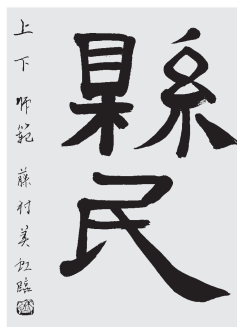 縣民
上下師範 藤村美虹臨